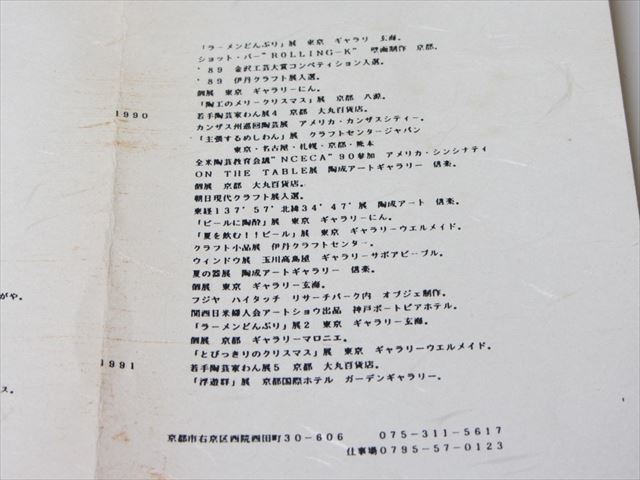 「ラーメンどんぶり」展　東京　ギャラリ　玄海。
ショット・バー"ROLLING-K"　壁画制作　京都。
'89　金沢工芸大賞コンペティション入選。
'89　伊丹クラフト展入選。
個展　東京　ギャラリーにん。
「陶工のメリークリスマス」展　京都　八源。
1990　若手陶芸家わん展4　京都　大丸百貨店。
カンザス州巡回陶芸展　アメリカ・カンザスシティー。
「主張するめしわん」展　クラフトセンタージャパン
東京・名古屋・札幌・京都・熊本
全米陶芸教育会議"NCECA"90参加　アメリカ・シンシナティ
ON THE TABLE展　陶成アートギャラリー　信楽。
個展　京都　大丸百貨店。
朝日現代クラフト展入選。
東経137°57′北緯34°47′展　陶成アート　信楽。
「ビールに陶酔」展　東京　ギャラリーにん。
「夏を飲む！！ビール」展　東京　ギャラリーウエルメイド。
クラフト小品展　伊丹クラフトセンター。
ウィンドウ展　玉川高島屋　ギャラリーサボアビーブル。
夏の器展　陶成アートギャラリー　信楽。
個展　東京　ギャラリー玄海。
フジヤ　ハイタッチ　リサーチパーク内　オブジェ制作。
がや。
関西日米婦人会アートショウ出品　神戸ポートピアホテル。
「ラーメンどんぶり」展2　東京　ギャラリー玄海。
個展　京都　ギャラリーマロニエ。
「とびっきりのクリスマス」展　東京　ギャラリーウエルメイド。
1991　若手陶芸家わん展5　京都　大丸百貨店。
ス。
「浮遊群」展　京都国際ホテル　ガーデンギャラリー。
京都市右京区西院西田町30-606　075-311-5617
仕事場0795-57-0123